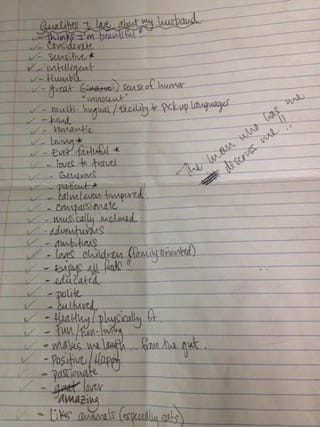 Qualities I love about my husband
- Thinks I'm beautiful*
- Considerate
- sensitive*
- intelligent
- Humble
- great (sense) sense of humor
"innocent"
- multi-lingual/facility to pick up languages
- kind
- romantic
- loving*
- Ever faithful*
- loves to travel
- Generous
- patient*
- calm/even-tempered
- compassionate
- musically inclined
- adventurous
- ambitious
- loves children (family oriented)
- Enjoys all foods!!
- educated
- polite
- cultured
- Healthy/physically fit
- fun/fun-loving
- makes me laugh... from the gut.
- Positive/Happy
- passionate
- great lover
amazing
- Likes animals (especially cats)
The man who has me
deserves me!!